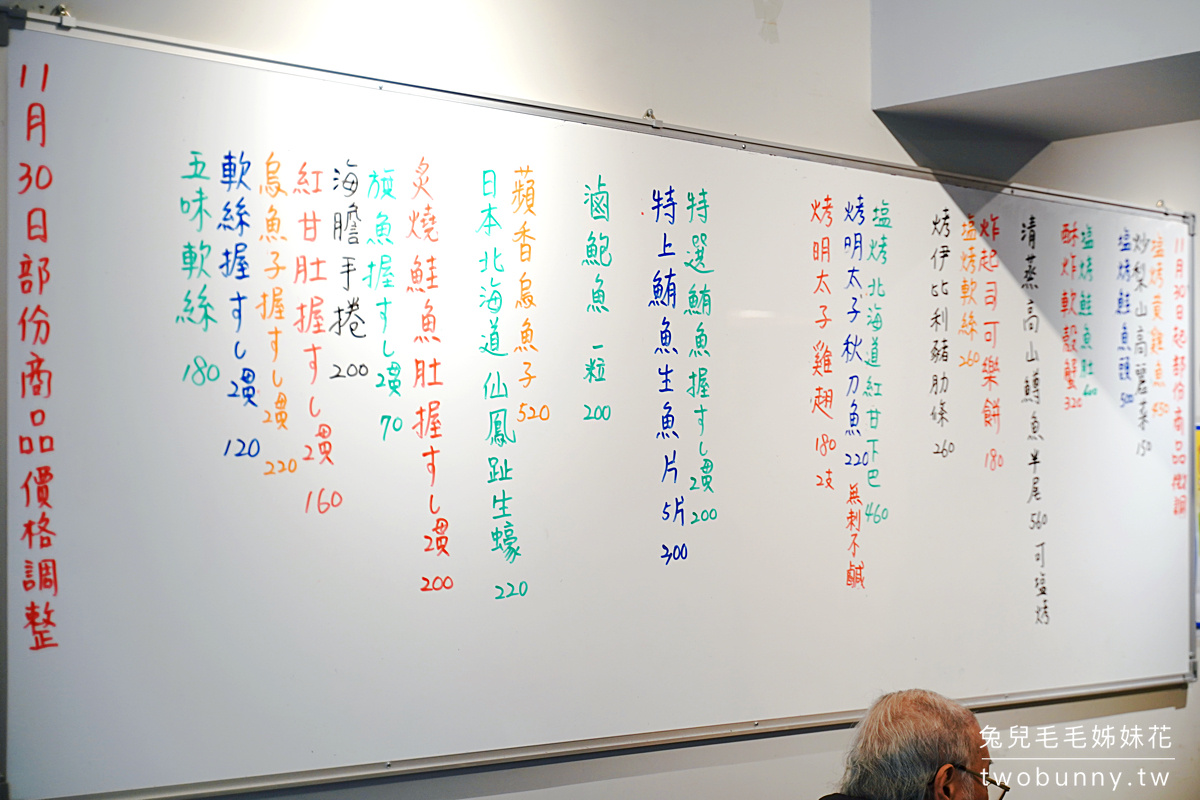 11月30日起部份商品
塩烤黃雞魚 450
炒梨山高麗菜 150
塩烤鮭魚頭 500
塩烤鮭魚肚
酥炸軟殼蟹 320
清蒸高山鱒魚半尾 560 可塩烤
炸起司可樂餅 180
塩烤軟絲 260
烤伊比利豬肋條 260
塩烤北海道紅甘下巴 460
烤明太子秋刀魚 220 無刺不鹹
烤明太子雞翅 180 2支
特選鮪魚握すし2貫 200
特上鮪魚生魚片 5片 300
滷鮑魚一粒 200
蘋香烏魚子 520
日本北海道仙鳳趾生蠔 220
炙燒鮭魚肚握すし2貫 200
旗魚握すし2貫 70
海膽手捲 200
紅甘肚握すし2貫 160
烏魚子握すし2貫 220
軟絲握すし2貫 120
五味軟絲 180
11月30日部份商品價格調整
兔兒毛毛姊妹花
twobunny.tw